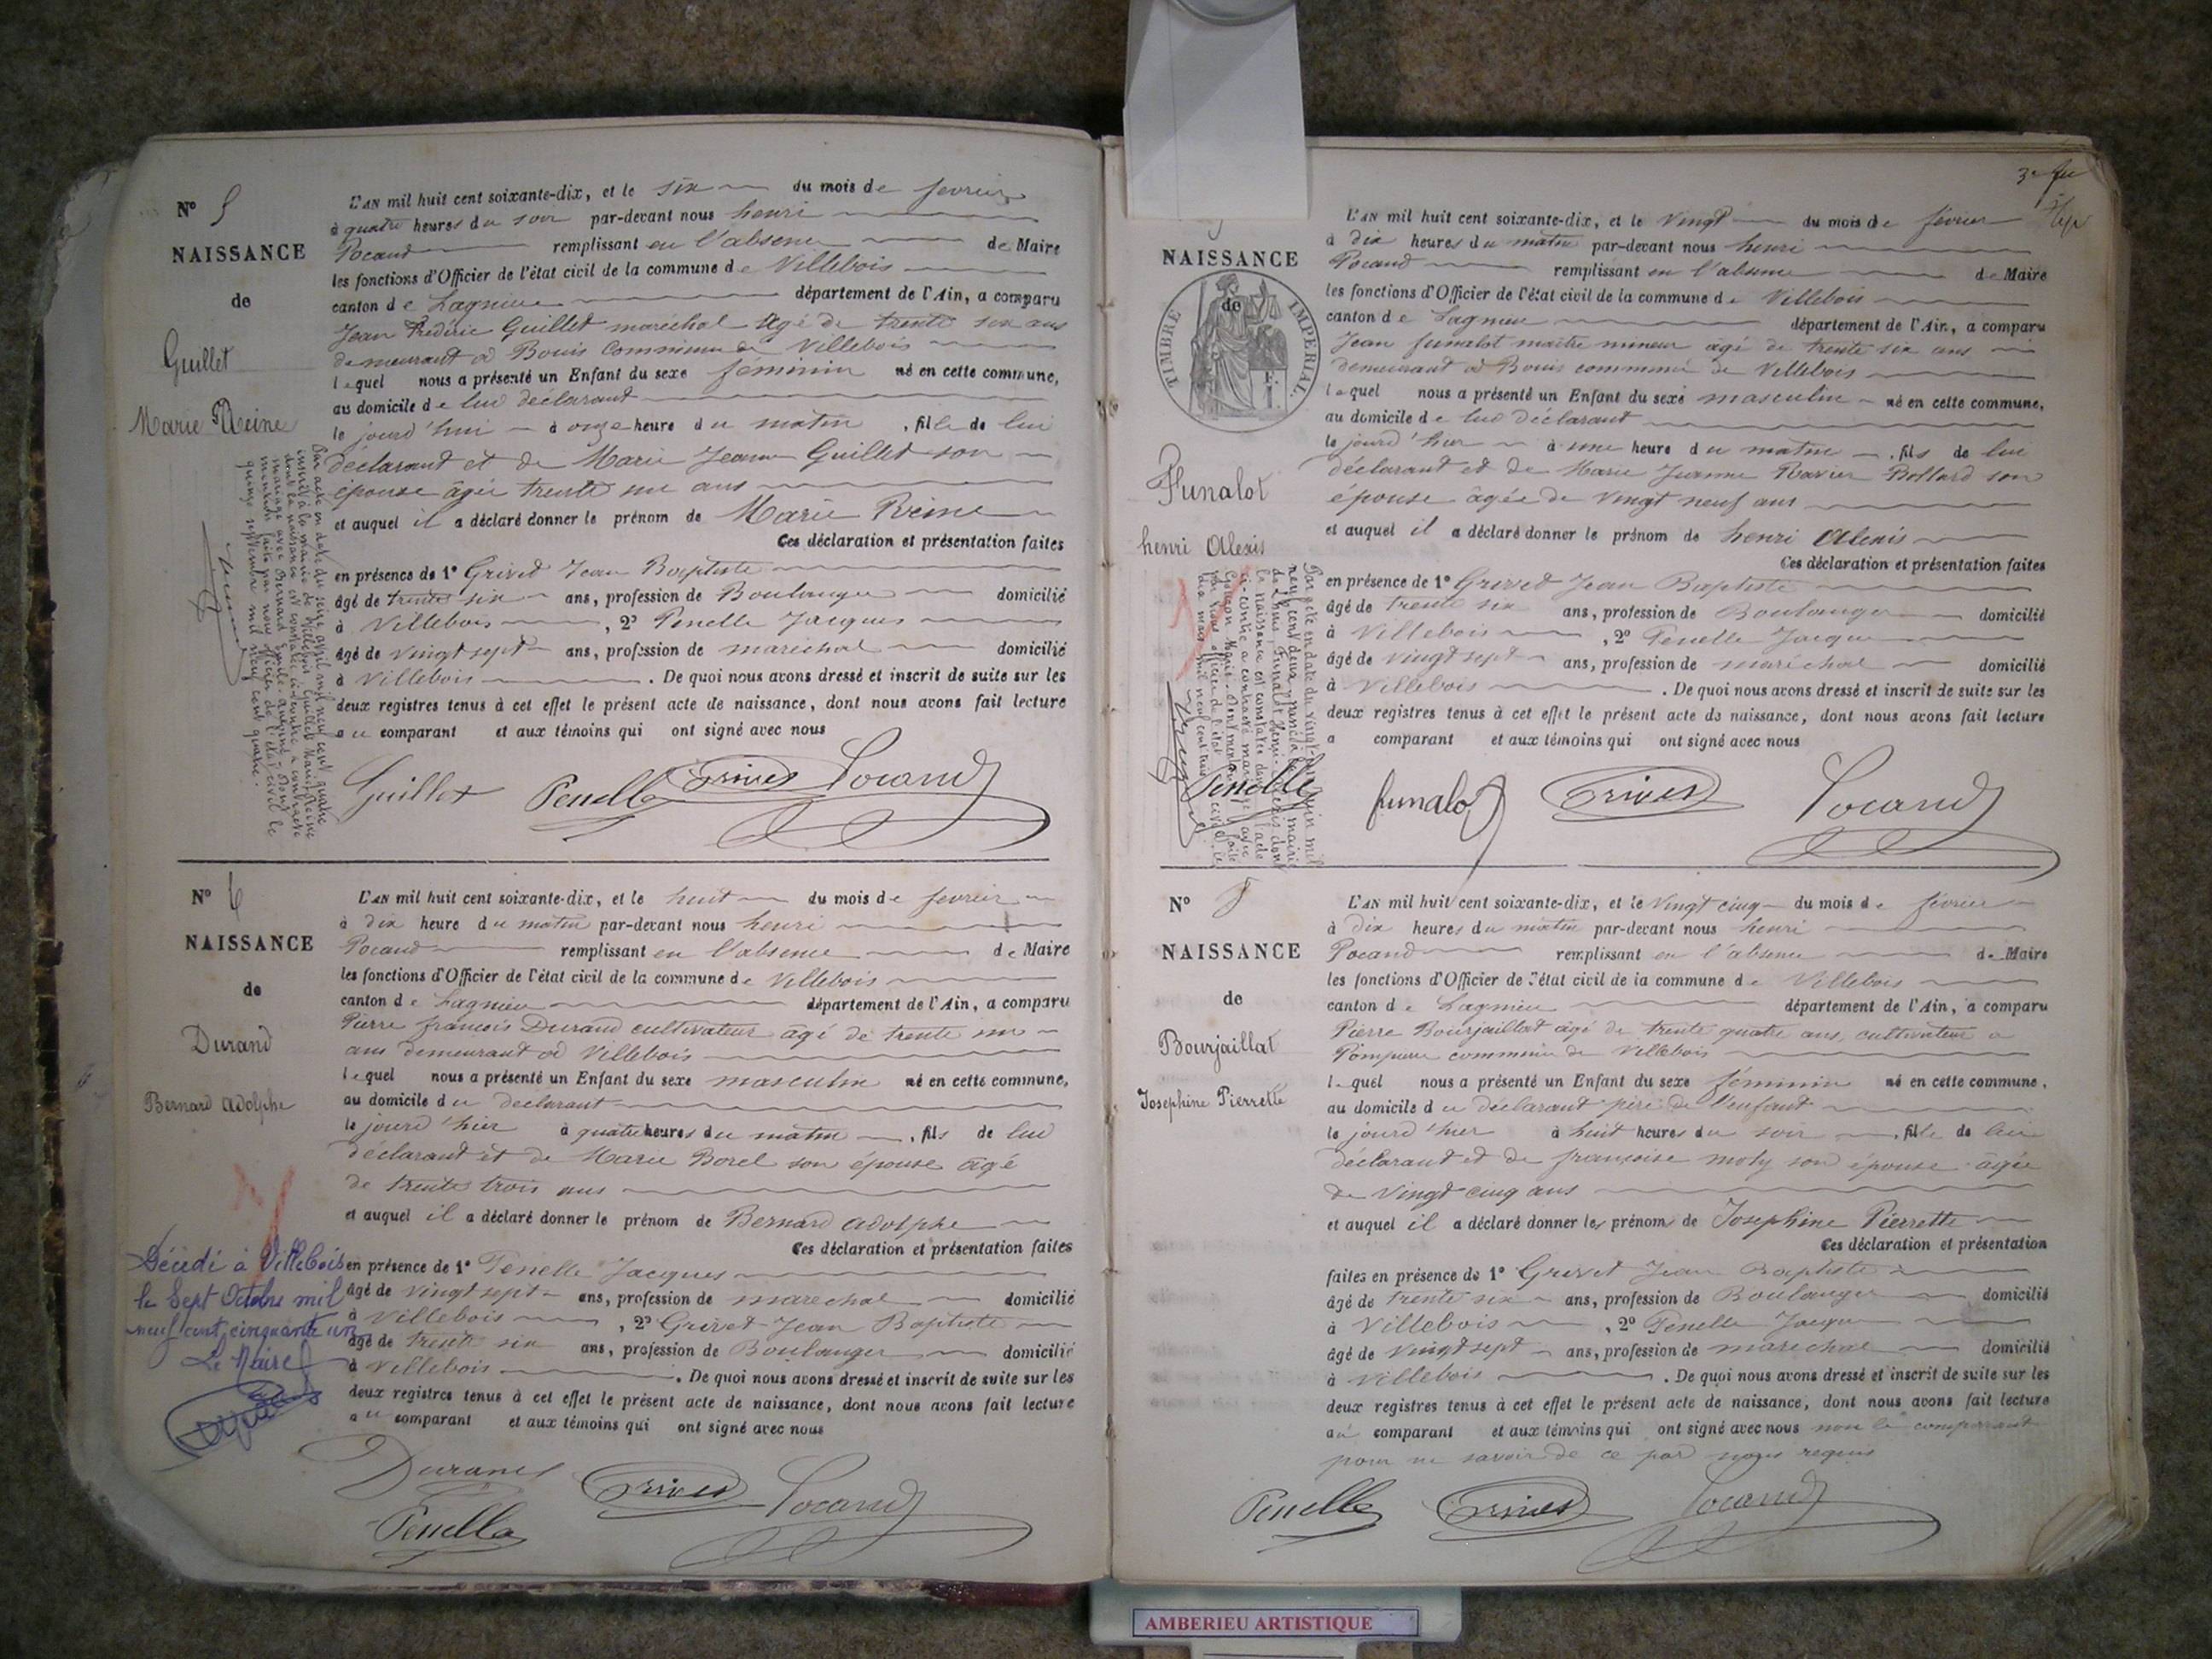 N° 5
NAISSANCE
de
Guillet
Marie Reine
L'AN mil huit cent soixante-dix, et le six du mois de fevrier
à quatre heures du soir par-devant nous henri
Pocand remplissant en l'absence de Maire
les fonctions d'Officier de l'état civil de la commune de Villebois
canton de Lagnieu département de l'Ain, a comparu
Jean Frédéric Guillet maréchal âgé de trente six ans
demeurant à Bouis Commune de Villebois
lequel nous a présenté un Enfant du sexe féminin né en cette commune,
au domicile de lui déclarant
le jourd'hui à onze heure du matin, fille de lui
déclarant et de Marie Jeanne Guillet son
épouse âgée trente un ans
et auquel il a déclaré donner le prénom de Marie Reine
Ces déclaration et présentation faites
en présence de 1° Grivet Jean Baptiste
âgé de trente six ans, profession de Boulanger domicilié
à Villebois, 2° Penelle Jacques
âgé de vingt sept ans, profession de maréchal domicilié
à Villebois. De quoi nous avons dressé et inscrit de suite sur les
deux registres tenus à cet effet le présent acte de naissance, dont nous avons fait lecture
au comparant et aux témoins qui ont signé avec nous
Guillet Penelle Grivet Pocand
Par acte en date du seize avril mil neuf cent quatre
inscrit à la mairie de Villebois Guillet Marie Reine
dont la naissance est constatée ci-contre a contracté
mariage avec Bernard
mention faite par nous officier de l'état civil le
quinze septembre mil neuf cent quatre.
N° 6
NAISSANCE
de
Durand
Bernard Adolphe
L'AN mil huit cent soixante-dix, et le huit du mois de fevrier
à dix heure du matin par-devant nous henri
Pocand remplissant en l'absence de Maire
les fonctions d'Officier de l'état civil de la commune de Villebois
canton de Lagnieu département de l'Ain, a comparu
Pierre françois Durand cultivateur âgé de trente un
ans demeurant à Villebois
lequel nous a présenté un Enfant du sexe masculin né en cette commune,
au domicile du declarant
le jourd'hier à quatre heures du matin, fils de lui
déclarant et de Marie Borel son épouse âgé
de trente trois ans
et auquel il a déclaré donner le prénom de Bernard Adolphe
Ces déclaration et présentation faites
en présence de 1° Penelle Jacques
âgé de vingt sept ans, profession de marechal domicilié
à Villebois, 2° Grivet Jean Baptiste
âgé de trente six ans, profession de Boulanger domicilié
à Villebois. De quoi nous avons dressé et inscrit de suite sur les
deux registres tenus à cet effet le présent acte de naissance, dont nous avons fait lecture
au comparant et aux témoins qui ont signé avec nous
Durand Grivet Pocand
Penelle
Décédé à Villebois
le Sept Octobre mil
neuf cent cinquante un
Le Maire
NAISSANCE
de
TIMBRE IMPERIAL
Funalot
henri Alexis
L'AN mil huit cent soixante-dix, et le vingt du mois de février
à dix heures du matin par-devant nous henri
Pocand remplissant en l'absence de Maire
les fonctions d'Officier de l'état civil de la commune de Villebois
canton de Lagnieu département de l'Ain, a comparu
Jean funalot maître mineur âgé de trente six ans
demeurant à Bouis commune de Villebois
lequel nous a présenté un Enfant du sexe masculin né en cette commune,
au domicile de lui déclarant
le jourd'hier à une heure du matin, fils de lui
déclarant et de Marie Jeanne Ravier Bollard son
épouse âgée de vingt neuf ans
et auquel il a déclaré donner le prénom de henri Alexis
Ces déclaration et présentation faites
en présence de 1° Grivet Jean Baptiste
âgé de trente six ans, profession de Boulanger domicilié
à Villebois, 2° Penelle Jacques
âgé de vingt sept ans, profession de maréchal domicilié
à Villebois. De quoi nous avons dressé et inscrit de suite sur les
deux registres tenus à cet effet le présent acte de naissance, dont nous avons fait lecture
a comparant et aux témoins qui ont signé avec nous
Penelle funalot Grivet Pocand
N° 8
NAISSANCE
de
Bourjaillat
Josephine Pierrette
L'AN mil huit cent soixante-dix, et le vingt cinq du mois de février
à dix heures du matin par-devant nous henri
Pocand remplissant en l'absence de Maire
les fonctions d'Officier de l'état civil de la commune de Villebois
canton de Lagnieu département de l'Ain, a comparu
Pierre Bourjaillat âgé de trente quatre ans, cultivateur a
commune de Villebois
lequel nous a présenté un Enfant du sexe féminin né en cette commune,
au domicile du déclarant père de l'enfant
le jourd'hier à huit heures du soir, fille de lui
déclarant et de françoise moly son épouse âgée
de vingt cinq ans
et auquel il a déclaré donner les prénoms de Josephine Pierrette
Ces déclaration et présentation
faites en présence de 1° Grivet Jean Baptiste
âgé de trente six ans, profession de Boulanger domicilié
à Villebois, 2° Penelle Jacques
âgé de vingt sept ans, profession de maréchal domicilié
à Villebois. De quoi nous avons dressé et inscrit de suite sur les
deux registres tenus à cet effet le présent acte de naissance, dont nous avons fait lecture
au comparant et aux témoins qui ont signé avec nous non le comparant
pour ne savoir de ce par nous requis
Penelle Grivet Pocand
AMBERIEU ARTISTIQUE